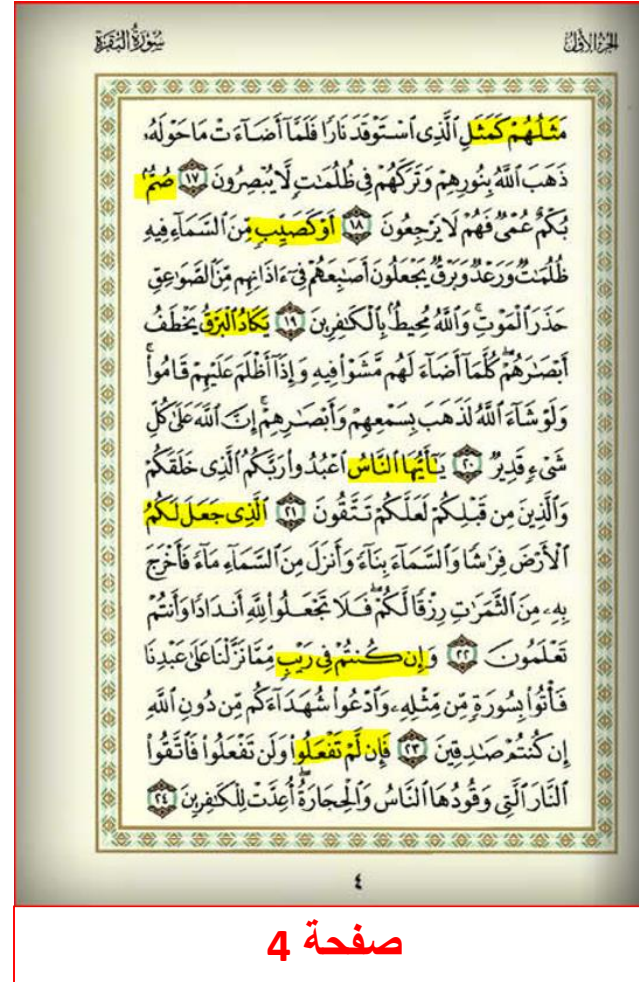 الجزء الأول
سورة البقرة
مَثَلُهُمْ كَمَثَلِ ٱلَّذِى ٱسْتَوْقَدَ نَارًا فَلَمَّآ أَضَآءَتْ مَا حَوْلَهُۥ
ذَهَبَ ٱللَّهُ بِنُورِهِمْ وَتَرَكَهُمْ فِى ظُلُمَٰتٍ لَّا يُبْصِرُونَ ١٧ صُمٌّۢ
بُكْمٌ عُمْىٌ فَهُمْ لَا يَرْجِعُونَ ١٨ أَوْ كَصَيِّبٍ مِّنَ ٱلسَّمَآءِ فِيهِ
ظُلُمَٰتٌ وَرَعْدٌ وَبَرْقٌ يَجْعَلُونَ أَصَٰبِعَهُمْ فِىٓ ءَاذَانِهِم مِّنَ ٱلصَّوَٰعِقِ
حَذَرَ ٱلْمَوْتِ ۚ وَٱللَّهُ مُحِيطٌۢ بِٱلْكَٰفِرِينَ ١٩ يَكَادُ ٱلْبَرْقُ يَخْطَفُ
أَبْصَٰرَهُمْ ۖ كُلَّمَآ أَضَآءَ لَهُم مَّشَوْا۟ فِيهِ وَإِذَآ أَظْلَمَ عَلَيْهِمْ قَامُوا۟ ۚ
وَلَوْ شَآءَ ٱللَّهُ لَذَهَبَ بِسَمْعِهِمْ وَأَبْصَٰرِهِمْ ۚ إِنَّ ٱللَّهَ عَلَىٰ كُلِّ
شَىْءٍ قَدِيرٌ ٢٠ يَٰٓأَيُّهَا ٱلنَّاسُ ٱعْبُدُوا۟ رَبَّكُمُ ٱلَّذِى خَلَقَكُمْ
وَٱلَّذِينَ مِن قَبْلِكُمْ لَعَلَّكُمْ تَتَّقُونَ ٢١ ٱلَّذِى جَعَلَ لَكُمُ
ٱلْأَرْضَ فِرَٰشًا وَٱلسَّمَآءَ بِنَآءً وَأَنزَلَ مِنَ ٱلسَّمَآءِ مَآءً فَأَخْرَجَ
بِهِۦ مِنَ ٱلثَّمَرَٰتِ رِزْقًا لَّكُمْ ۖ فَلَا تَجْعَلُوا۟ لِلَّهِ أَندَادًا وَأَنتُمْ
تَعْلَمُونَ ٢٢ وَإِن كُنتُمْ فِى رَيْبٍ مِّمَّا نَزَّلْنَا عَلَىٰ عَبْدِنَا
فَأْتُوا۟ بِسُورَةٍ مِّن مِّثْلِهِۦ وَٱدْعُوا۟ شُهَدَآءَكُم مِّن دُونِ ٱللَّهِ
إِن كُنتُمْ صَٰدِقِينَ ٢٣ فَإِن لَّمْ تَفْعَلُوا۟ وَلَن تَفْعَلُوا۟ فَٱتَّقُوا۟
ٱلنَّارَ ٱلَّتِى وَقُودُهَا ٱلنَّاسُ وَٱلْحِجَارَةُ ۖ أُعِدَّتْ لِلْكَٰفِرِينَ ٢٤
٤
صفحة 4